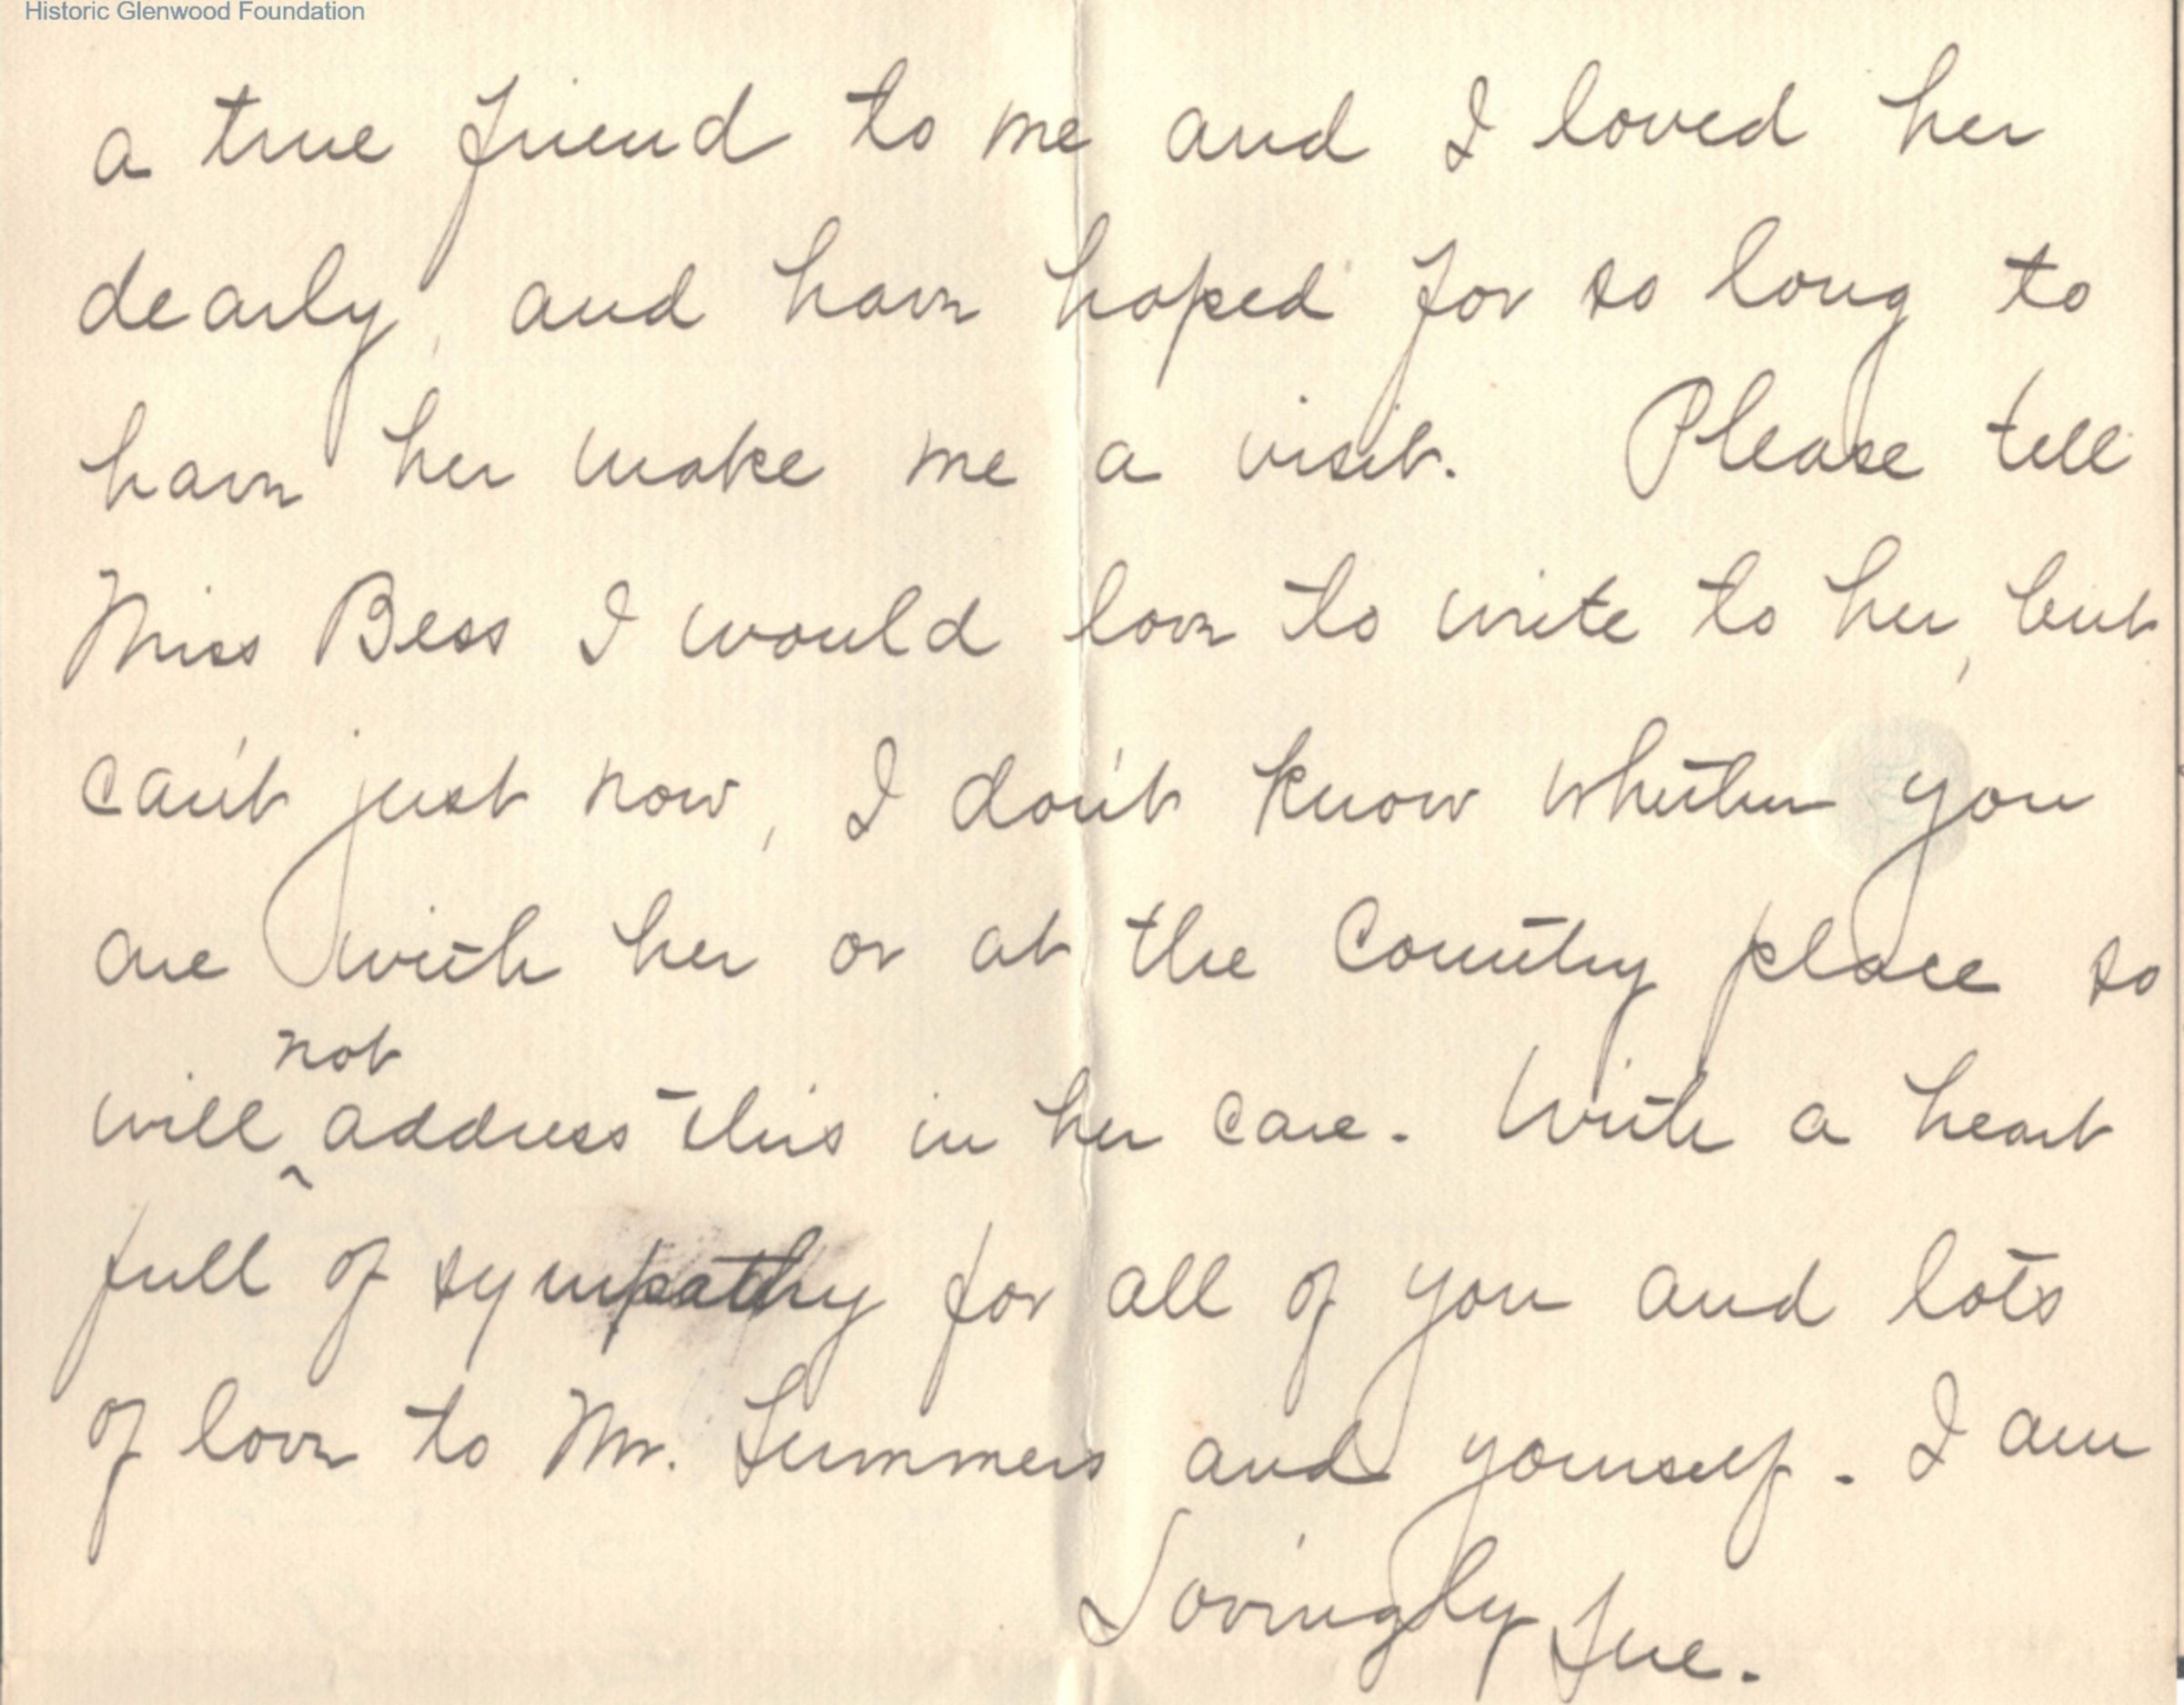 Historic Glenwood Foundation
a true friend to me and I loved her
dearly, and have hoped for so long to
have her make me a visit. Please tell
Miss Bess I would love to write to her, but
can't just now, I don't know whether you
are with her or at the Country place so
will not address this in her care. With a heart
full of sympathy for all of you and lots
of love to Mr. Summers and yourself. I am
Lovingly Sue.